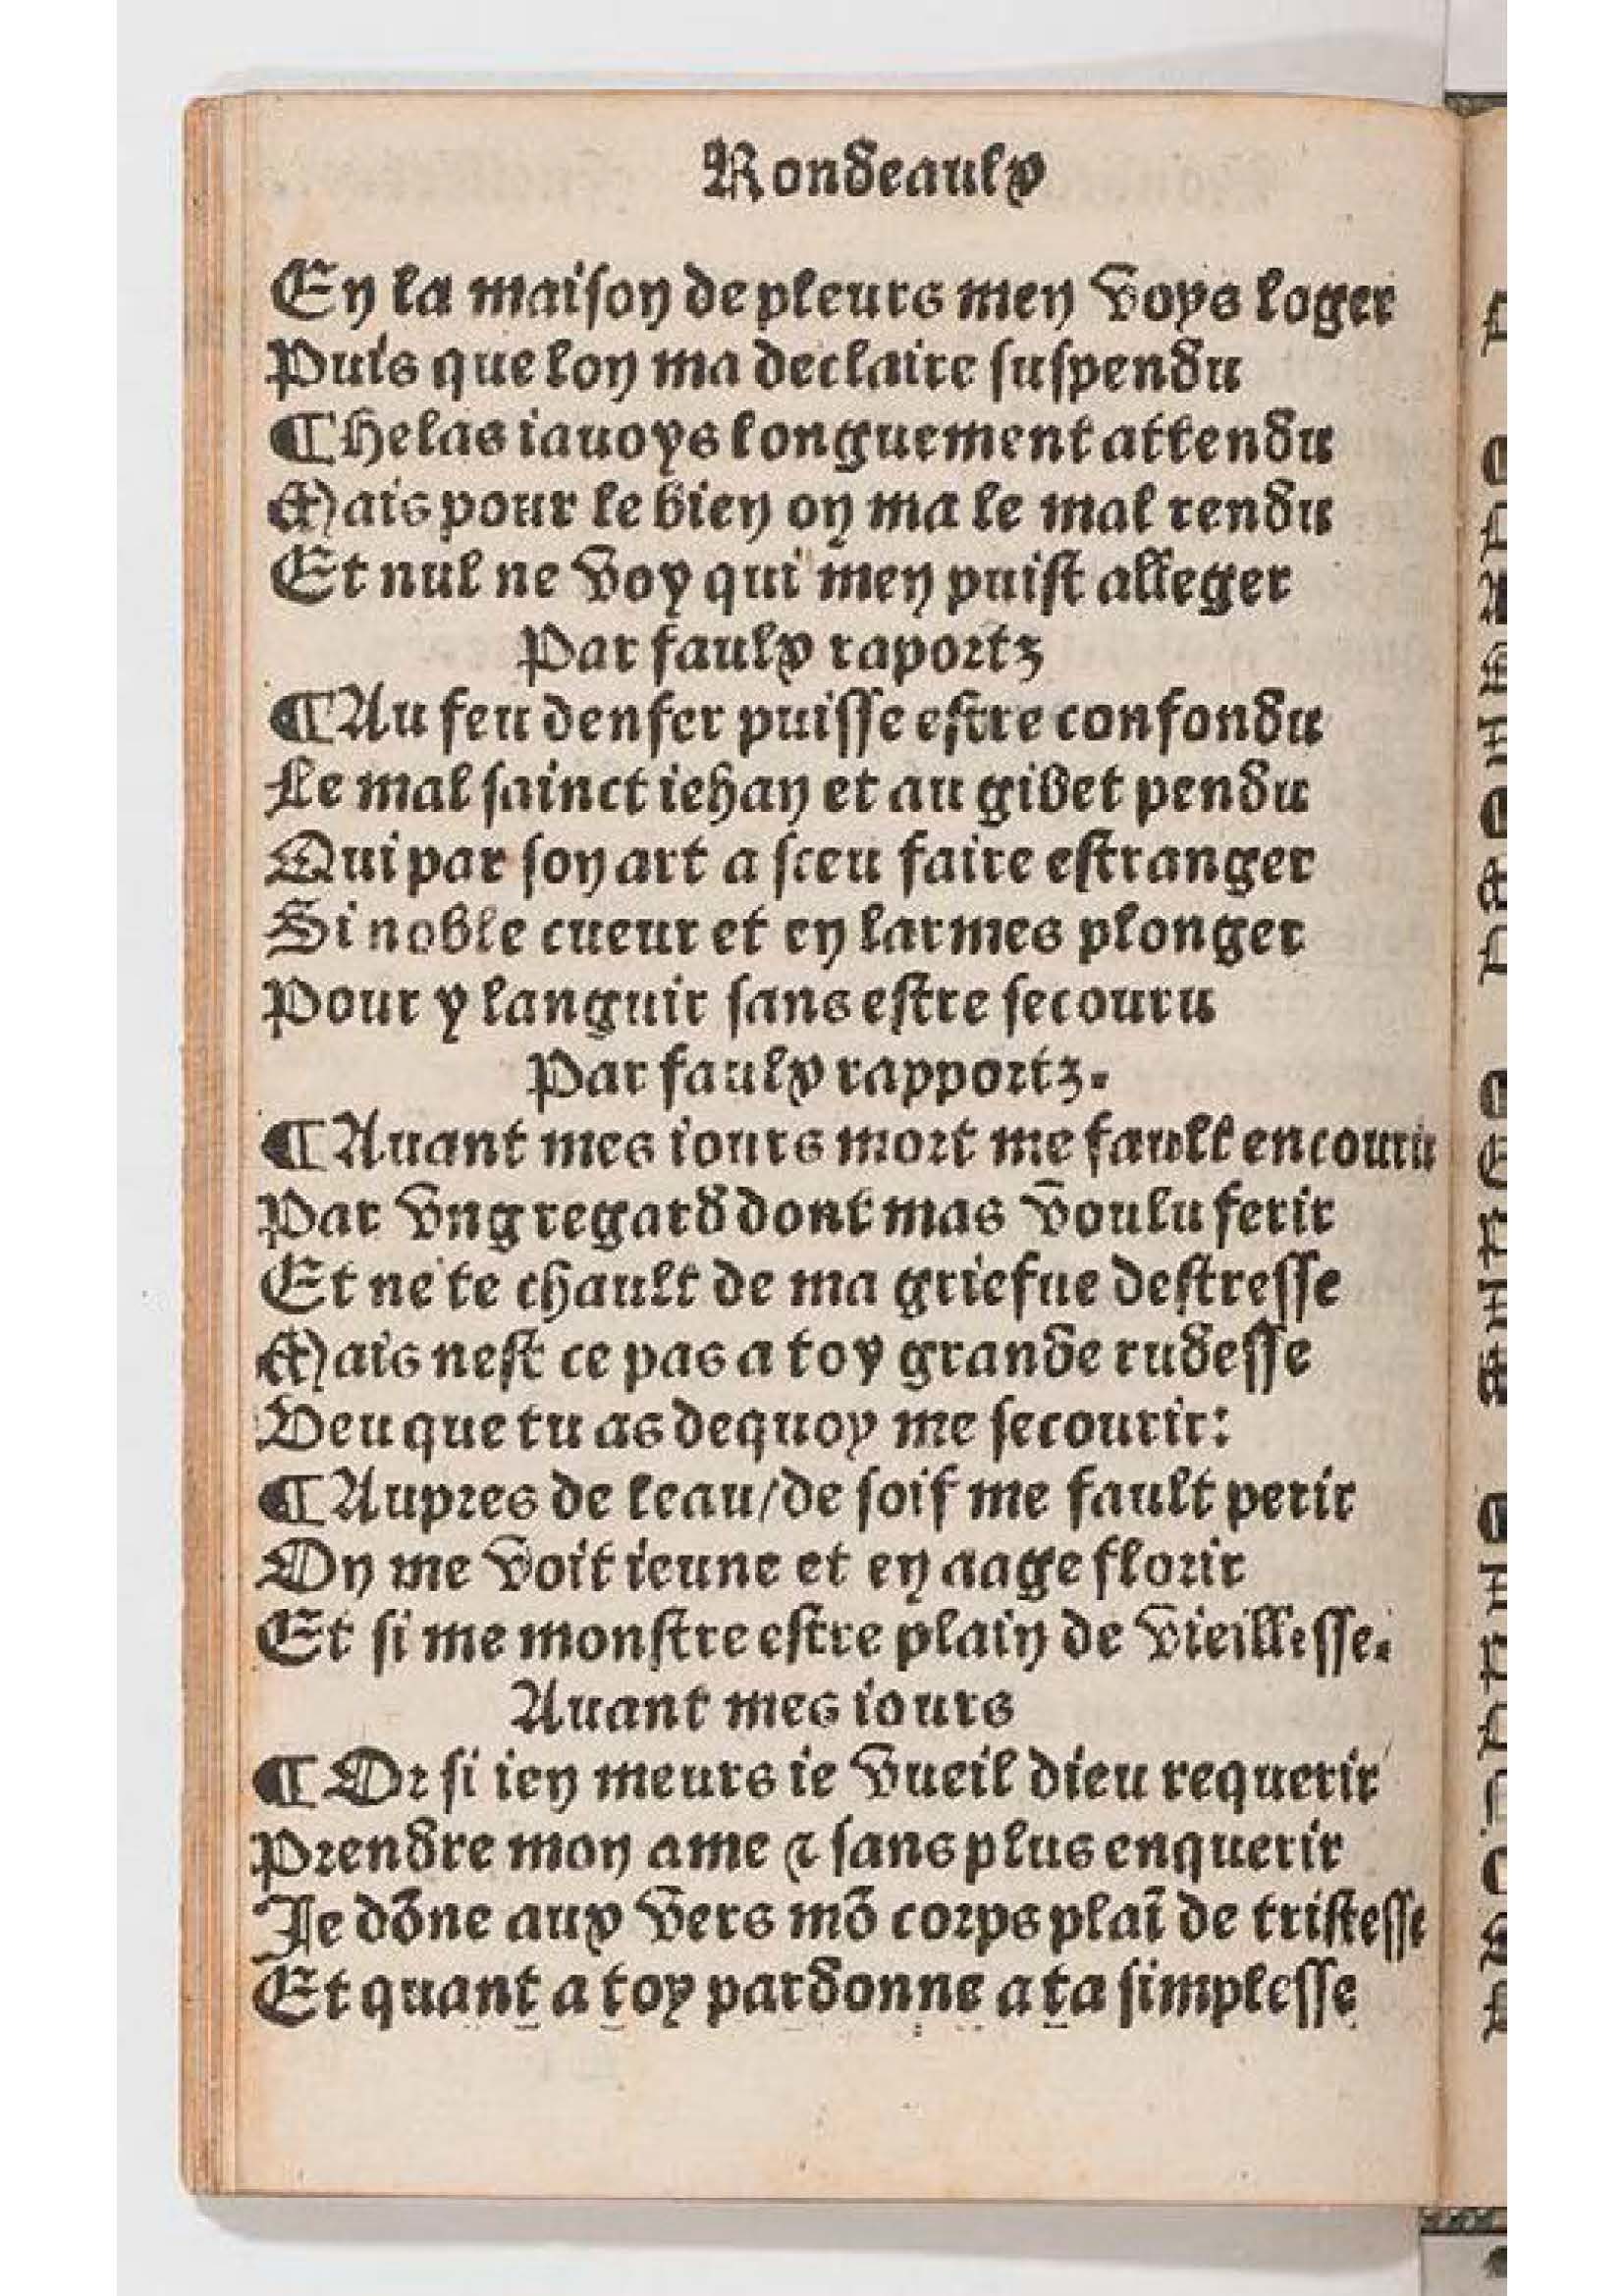 Rondeaulx
En la maison de pleurs men voys loger
Puis que lon ma declaire suspendu
¶ helas iauoys longuement attendu
Mais pour le bien on ma le mal rendu
Et nul ne voy qui men puist alleger
Par faulx raportz
¶ Au feu denfer puisse estre confondu
Le mal sainct iehan et au gibet pendu
Qui par son art a sceu faire estranger
Si noble cueur et en larmes plonger
Pour y languir sans estre secouru
Par faulx rapportz.
¶ Auant mes iours mort me fault encourir
Par vng regard dont mas voulu ferir
Et ne te chault de ma griefue destresse
Mais nest ce pas a toy grande rudesse
Veu que tu as dequoy me secourir:
¶ Aupres de leau/de soif me fault perir
On me voit ieune et en aage florir
Et si me monstre estre plain de vieillesse.
Auant mes iours
¶ Or si ien meurs ie vueil dieu requerir
Prendre mon ame ⁊ sans plus enquerir
Je dõne aux vers mõ corps plaĩ de tristesse
Et quant a toy pardonne a ta simplesse